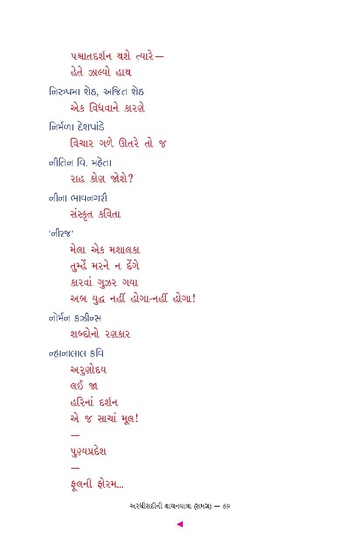 પશ્ચાતદર્શન થશે ત્યારે —
હેતે ઝાલ્યો હાથ
નિરુપમા શેઠ, અજિત શેઠ
એક વિધવાને કારણે
નિર્મળા દેશપાંડે
વિચાર ગળે ઊતરે તો જ
નીતિન વિ. મહેતા
રાહ કોણ જોશે?
નીના ભાવનગરી
સંસ્કૃત કવિતા
'નીરજ'
મેલા એક મશાલકા
તુમ્હેં મરને ન દેંગે
કારવાં ગુઝર ગયા
અબ યુદ્ધ નહીં હોગા-નહીં હોગા!
નૉર્મન કઝીન્સ
શબ્દોનો રણકાર
ન્હાનાલાલ કવિ
અરુણોદય
લઈ જા
હરિનાં દર્શન
એ જ સાચાં મૂલ!
—
પુણ્યપ્રદેશ
—
ફૂલની ફોરમ...
અરધીસદીની વાચનયાત્રા (સમગ્ર) — 69